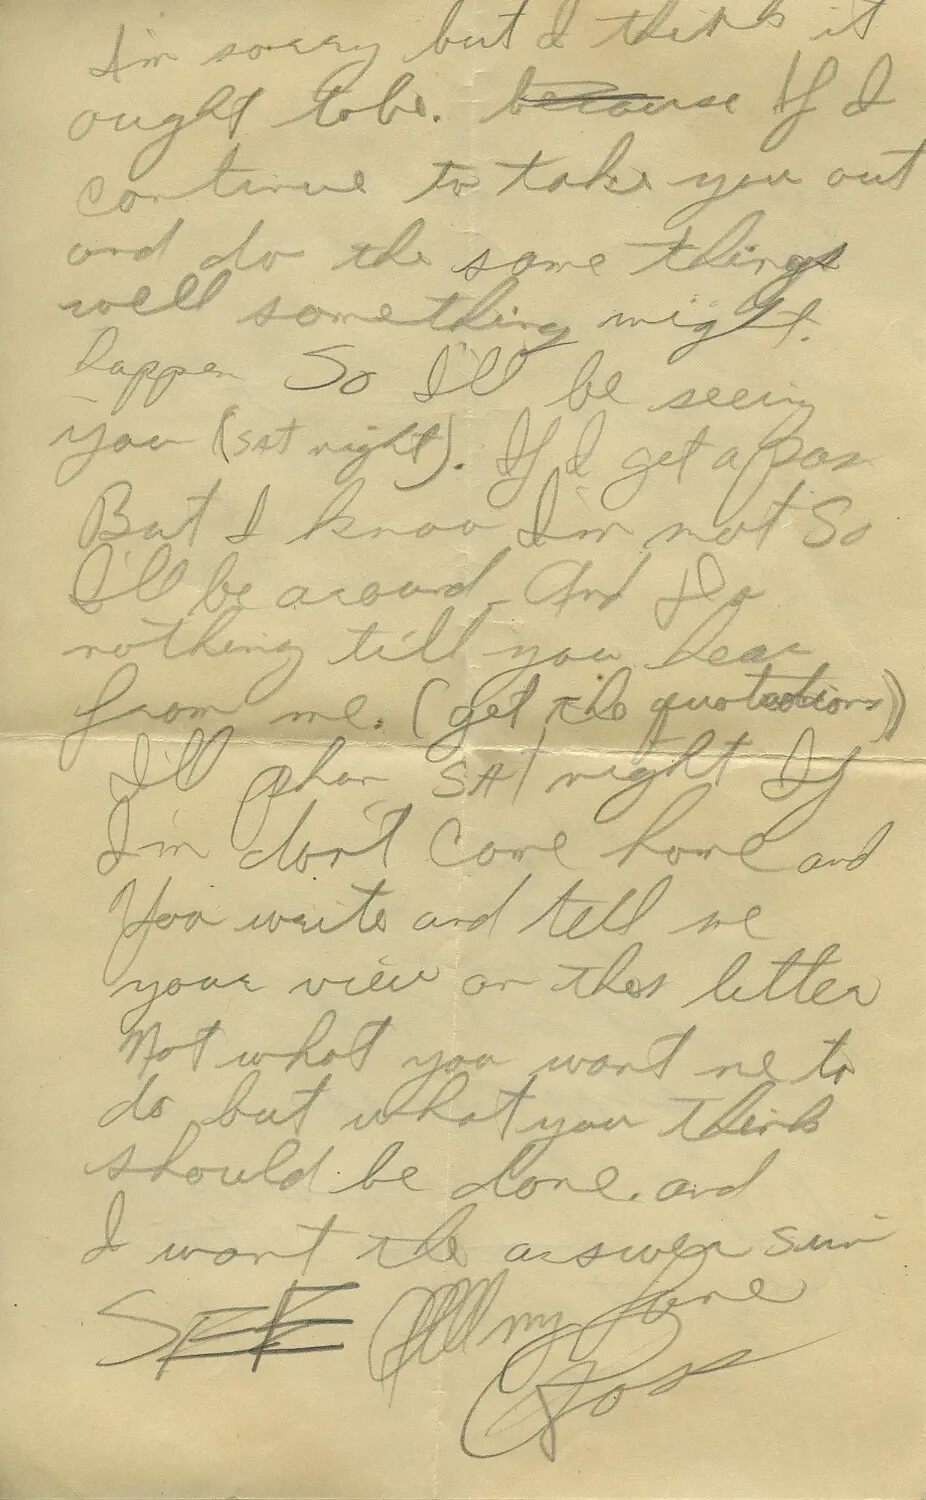 I'm sorry but I think it
ought to be. because If I
continue to take you out
and do the same things
well something might.
happen So I'll be seeing
you (SAT night). If I get a pass
But I know I'm not So
I'll be around. And Do
nothing till you hear
from me. (get the quotations)
I'll phon SAT night If
I'm don't come home and
You write and tell me
your view on this letter
Not what you want me to
do but what you think
should be done. and
I want the answer
SEE All my love